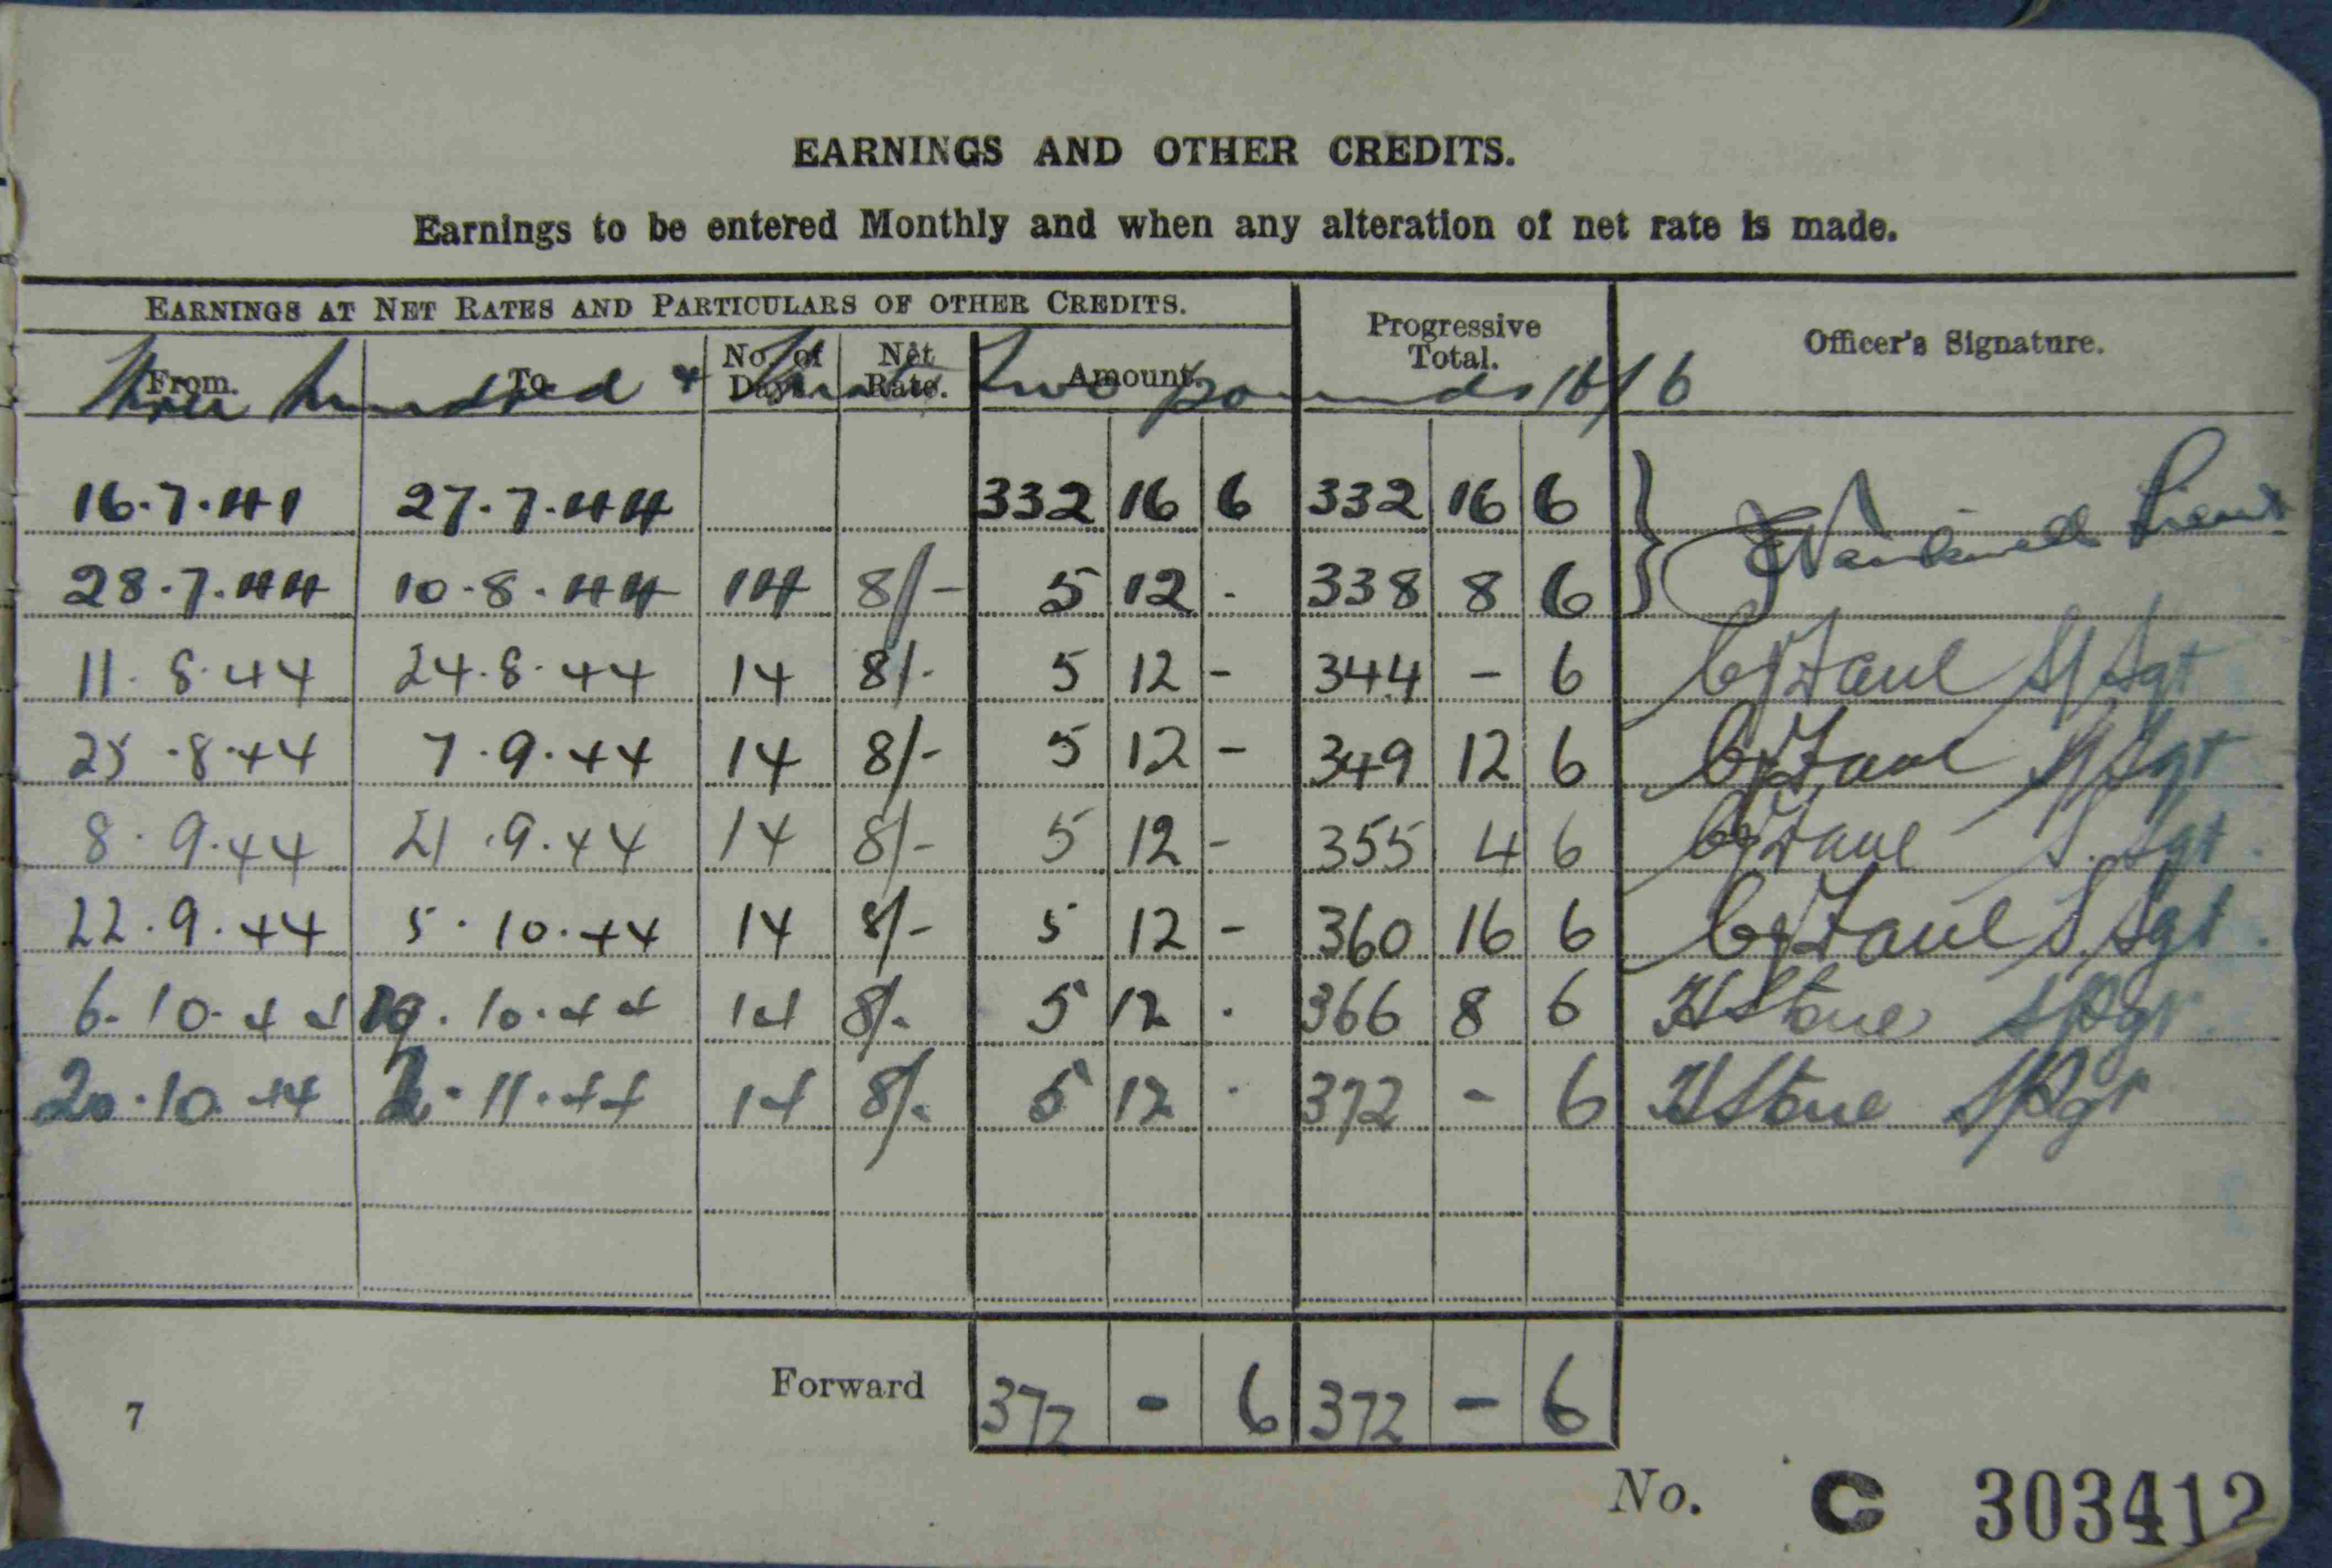 EARNINGS AND OTHER CREDITS.
Earnings to be entered Monthly and when any alteration of net rate is made.
EARNINGS AT NET RATES AND PARTICULARS OF OTHER CREDITS. Progressive Total. Officer's Signature.
From. To No. of Days. Net Rate. Amount.
Three hundred & thirty two pounds 16/6
16.7.41 27.7.44 332 16 6 332 16 6 Lieut
28.7.44 10.8.44 14 8/- 5 12 - 338 8 6
11.8.44 24.8.44 14 8/- 5 12 - 344 - 6 S/Sgt
25.8.44 7.9.44 14 8/- 5 12 - 349 12 6 S/Sgt
8.9.44 21.9.44 14 8/- 5 12 - 355 4 6 S.Sgt.
22.9.44 5.10.44 14 8/- 5 12 - 360 16 6 S.Sgt.
6.10.44 19.10.44 14 8/- 5 12 . 366 8 6 HStone
20.10.44 2.11.44 14 8/- 5 12 . 372 - 6 HStone
Forward 372 - 6 372 - 6
7
No. C 303412